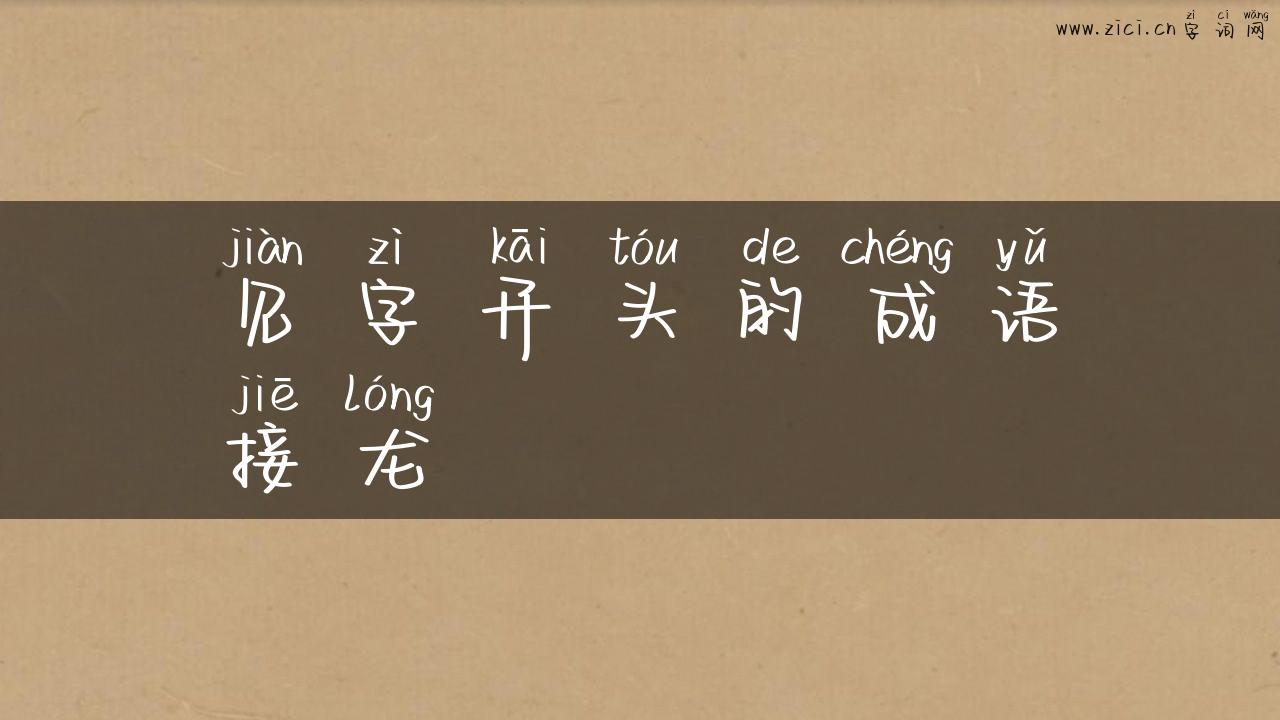 zì cí wǎng
www.zici.cn 字词网
jiàn zì kāi tóu de chéng yǔ
见字开头的成语
jiē lóng
接龙